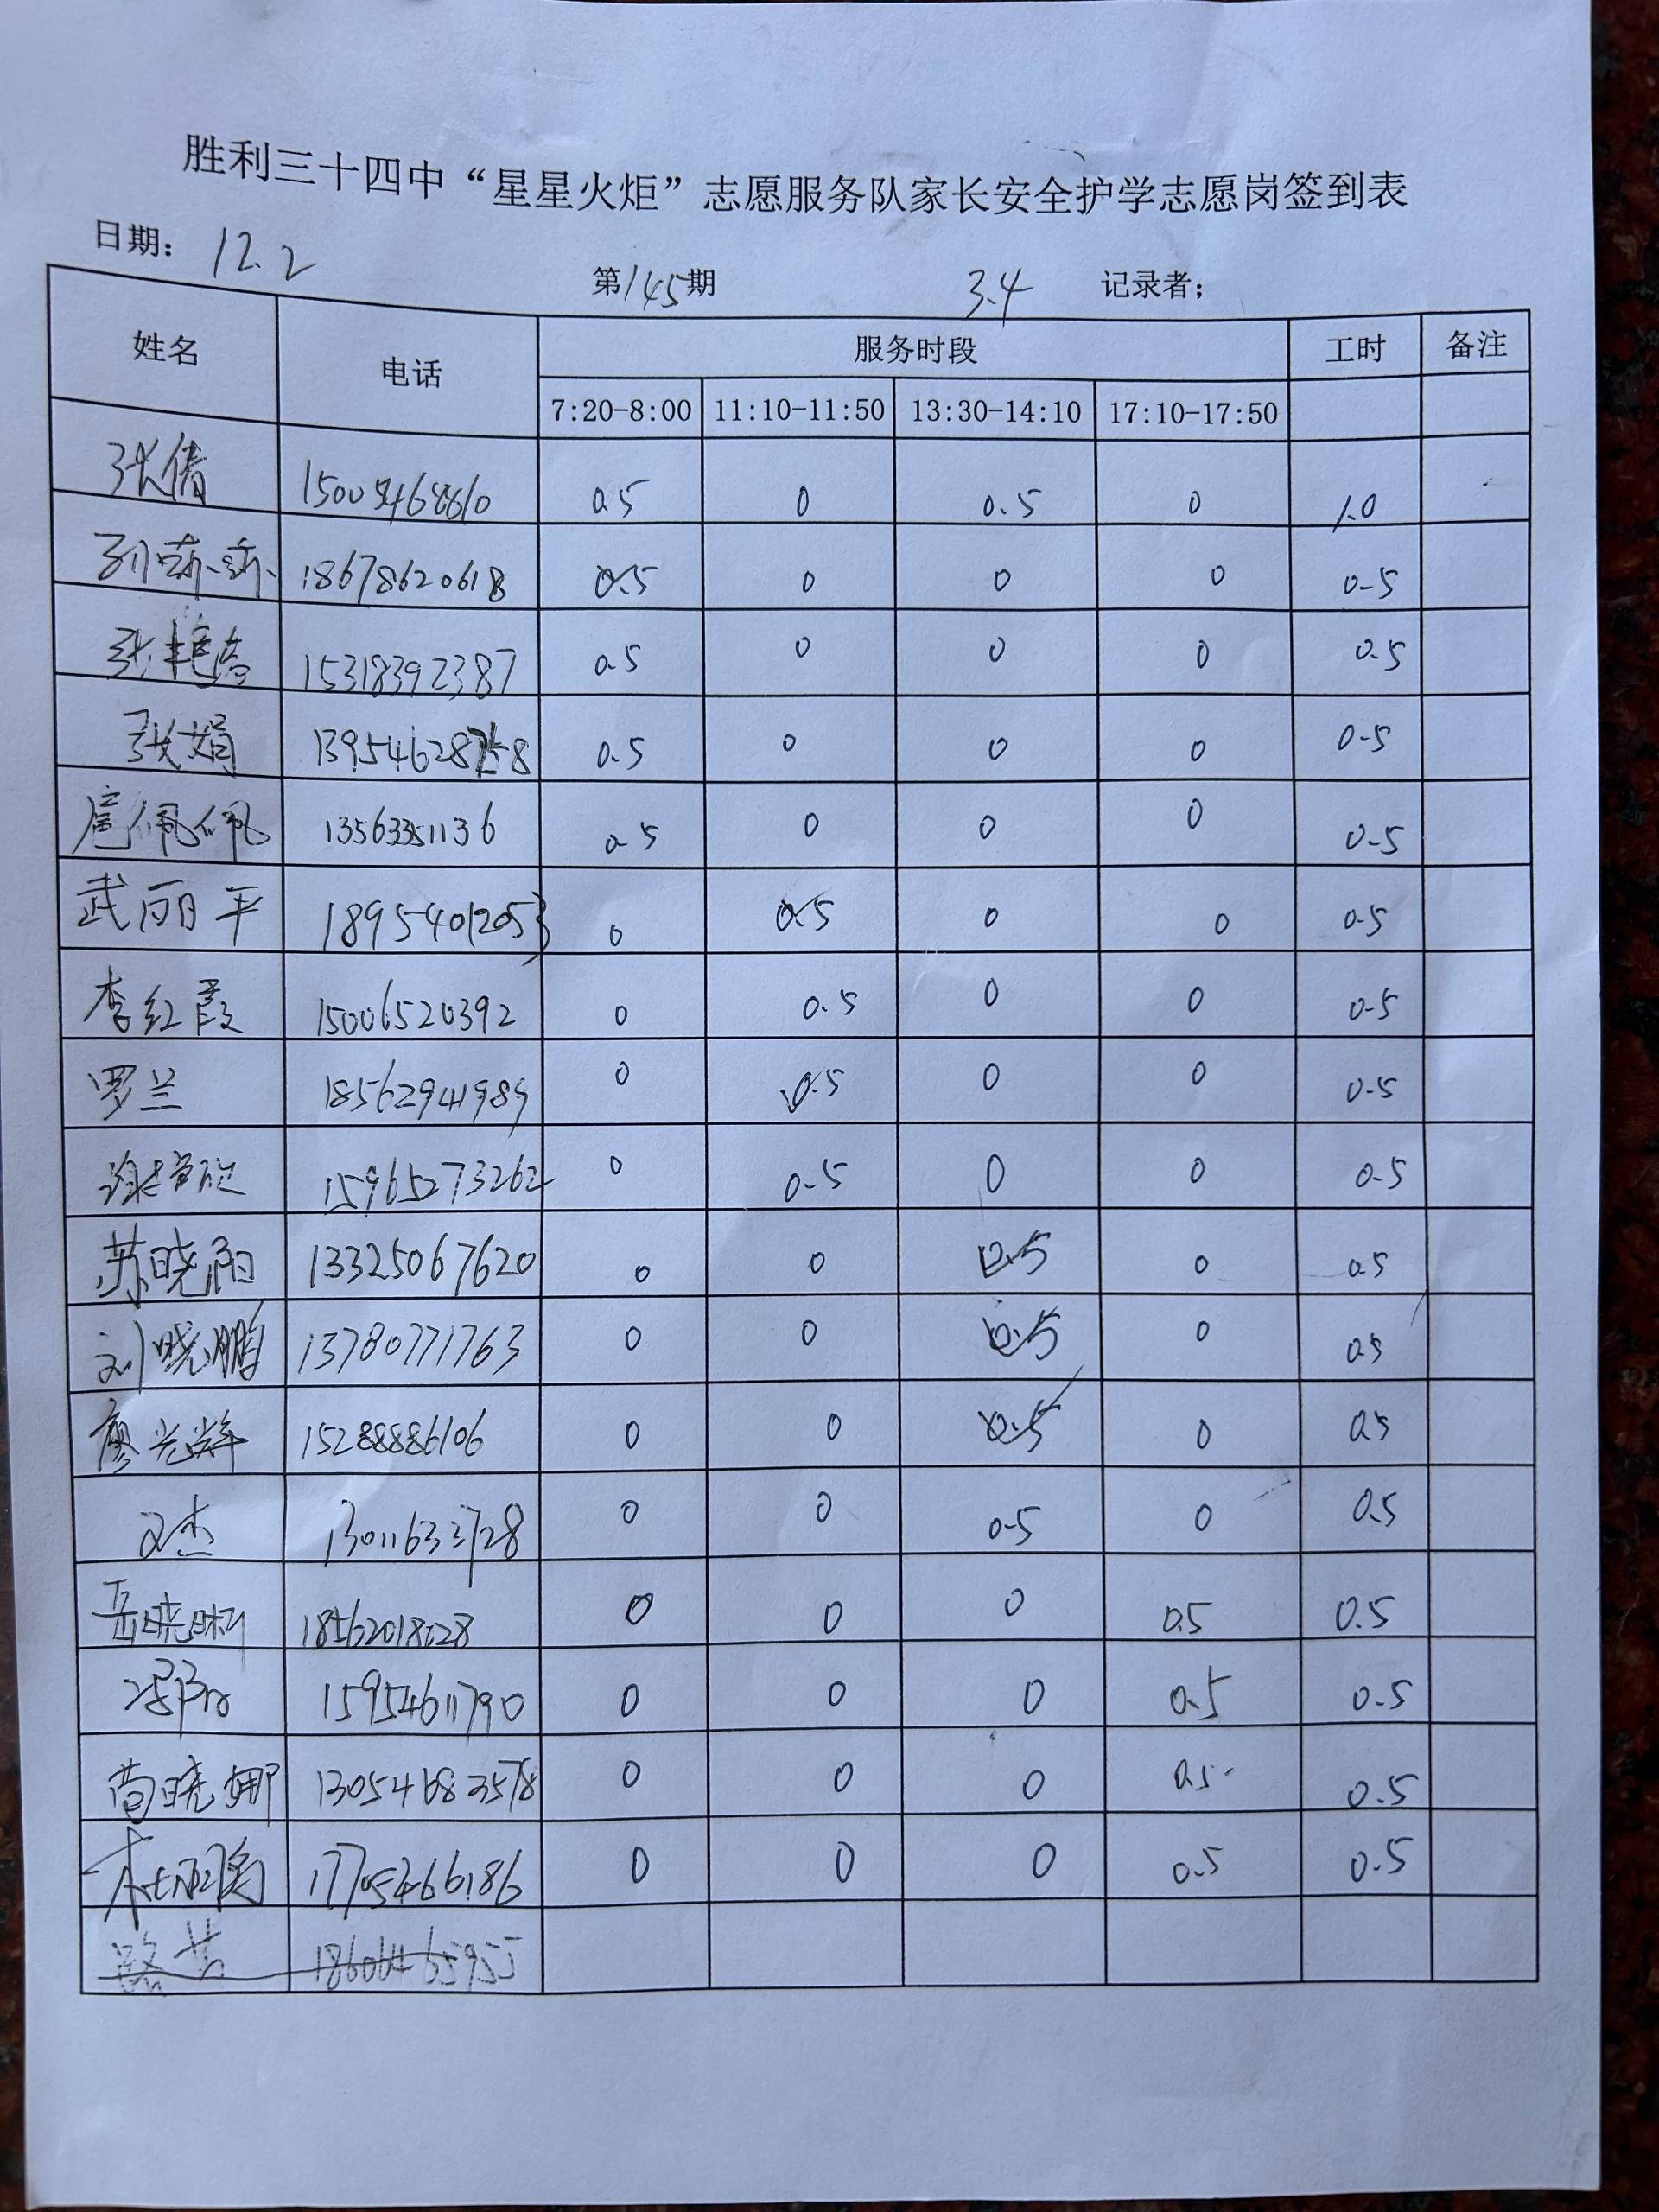 胜利三十四中“星星火炬”志愿服务队家长安全护学志愿岗签到表
日期： 12.2
第145期 3.4 记录者；
姓名 电话 服务时段 工时 备注
7:20-8:00 11:10-11:50 13:30-14:10 17:10-17:50
张倩 15005468810 0.5 0 0.5 0 1.0
18678620618 0.5 0 0 0 0.5
张艳春 15318392387 0.5 0 0 0 0.5
张娟 0.5 0 0 0 0.5
扈佩佩 13563351136 0.5 0 0 0 0.5
武丽平 18954012053 0 0.5 0 0 0.5
李红霞 15006520392 0 0.5 0 0 0.5
罗兰 18562941989 0 0.5 0 0 0.5
15965273262 0 0.5 0 0 0.5
苏晓雨 13325067620 0 0 0.5 0 0.5
刘晓鹏 13780771763 0 0 0.5 0 0.5
廖光辉 15288886106 0 0 0.5 0 0.5
文杰 13011633728 0 0 0.5 0 0.5
0 0 0 0.5 0.5
15954611790 0 0 0 0.5 0.5
苟晓娜 13054683578 0 0 0 0.5 0.5
17705466186 0 0 0 0.5 0.5
18606465955